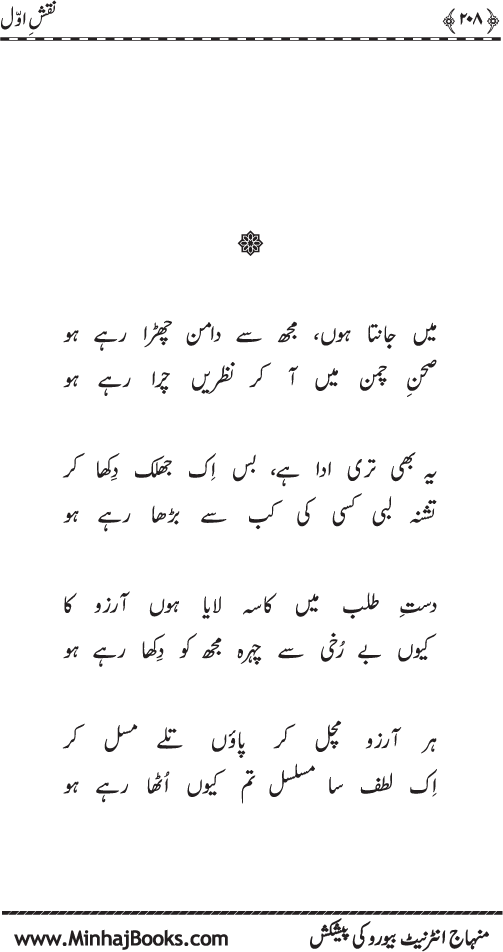 ﴿۲۰۸﴾ نقشِ اوّل
میں جانتا ہوں، مجھ سے دامن چھڑا رہے ہو
صحنِ چمن میں آ کر نظریں چرا رہے ہو
یہ بھی تری ادا ہے، بس اِک جھلک دِکھا کر
تشنہ لبی کسی کی کب سے بڑھا رہے ہو
دستِ طلب میں کاسہ لایا ہوں آرزو کا
کیوں بے رُخی سے چہرہ مجھ کو دِکھا رہے ہو
ہر آرزو مچل کر پاؤں تلے مسل کر
اِک لطف سا مسلسل تم کیوں اُٹھا رہے ہو
منہاج انٹرنیٹ بیورو کی پیشکش www.MinhajBooks.com